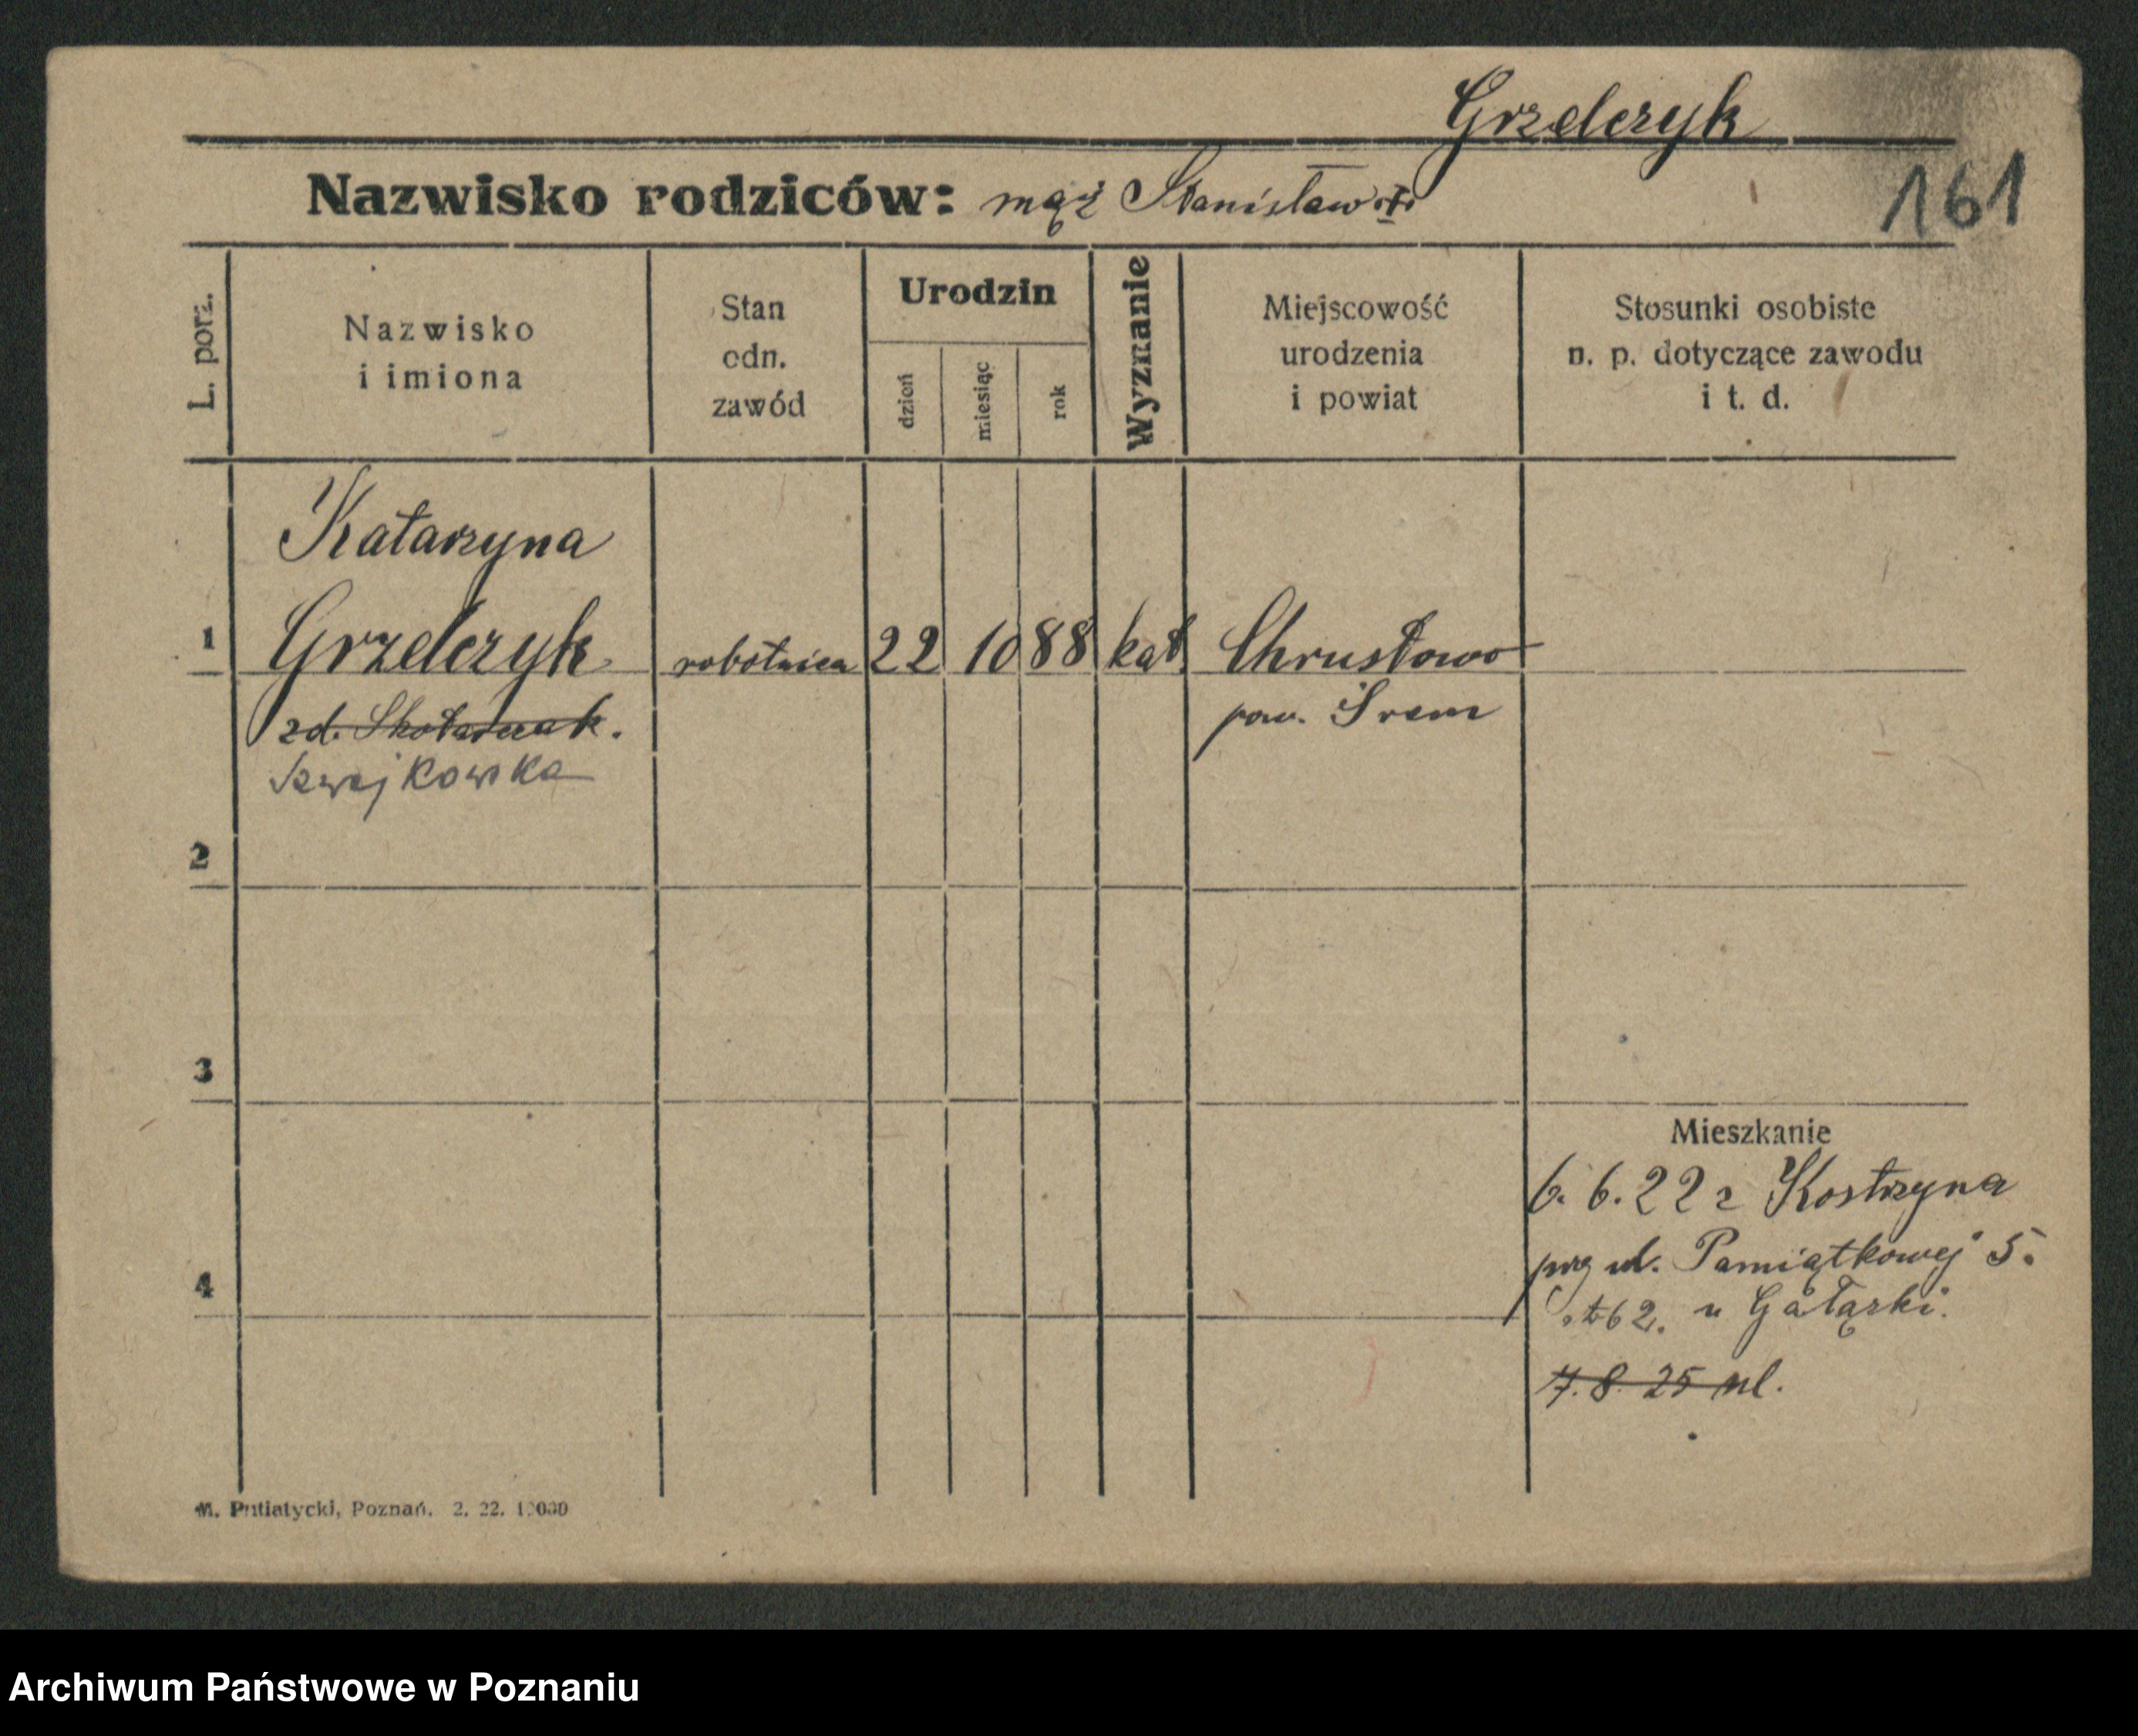 Grzelczyk
161
Nazwisko rodziców: mąż Stanisław
L. porz.
Nazwisko
i imiona
Stan
odn.
zawód
Urodzin
dzień
miesiąc
rok
Wyznanie
Miejscowość
urodzenia
i powiat
Stosunki osobiste
n. p. dotyczące zawodu
i t. d.
Katarzyna
1 Grzelczyk robotnica 22 10 88 kat. Chrustowo
zd. pow. Śrem
Szwejkowska
2
3
Mieszkanie
6. 6. 22 z Kostrzyna
ul. Pamiątkowej 5.
4
62. u
7. 8. 25
M. Putiatycki, Poznań. 2. 22. 10000
Archiwum Państwowe w Poznaniu